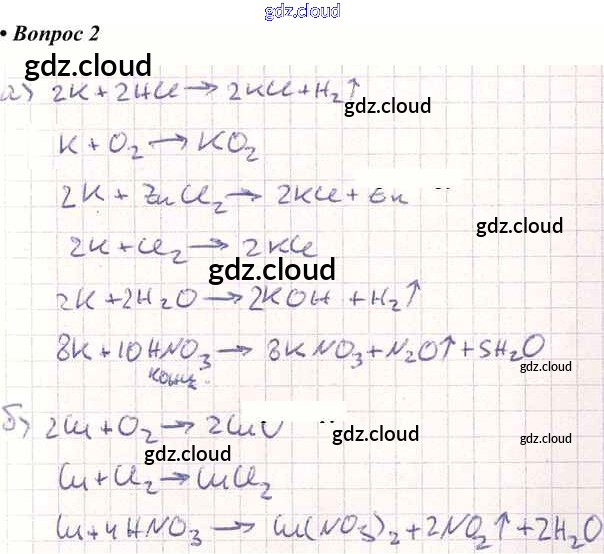 gdz.cloud
• Вопрос 2
gdz.cloud
а) 2K + 2HCl → 2KCl + H₂↑
gdz.cloud
K + O₂ → KO₂
2K + ZnCl₂ → 2KCl + Zn
gdz.cloud
2K + Cl₂ → 2KCl
gdz.cloud
2K + 2H₂O → 2KOH + H₂↑
8K + 10HNO₃ → 8KNO₃ + N₂O↑ + 5H₂O
конц.
gdz.cloud
б) 2Cu + O₂ → 2CuO
gdz.cloud
gdz.cloud
gdz.cloud
Cu + Cl₂ → CuCl₂
Cu + 4HNO₃ → Cu(NO₃)₂ + 2NO₂↑ + 2H₂O